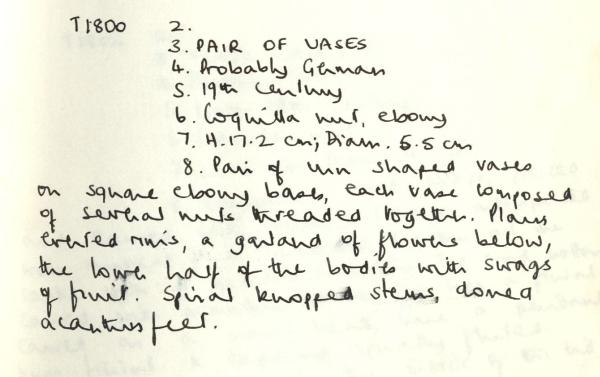 T1800 2.
3. PAIR OF VASES
4. Probably German
5. 19th Century
6. Coquilla nut, ebony
7. H.17.2 cm; Diam. 5.5 cm
8. Pair of urn shaped vases
on square ebony bases, each vase composed
of several nuts threaded together. Plain
everted rims, a garland of flowers below,
the lower half of the bodies with swags
of fruit. Spiral knopped stems, domed
acanthus feet.